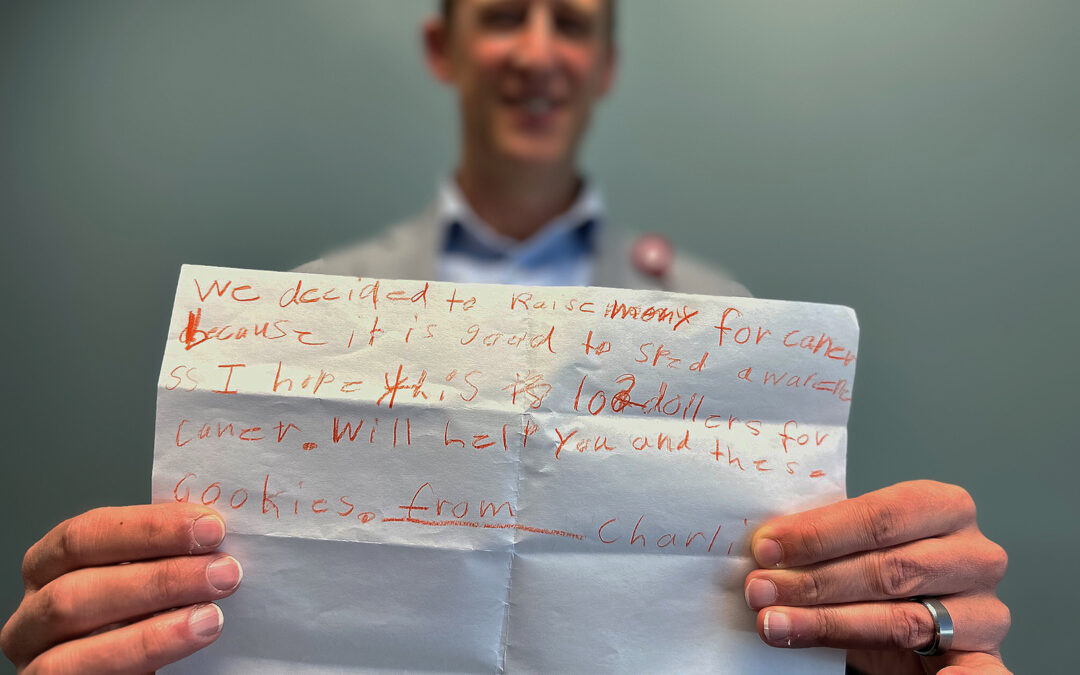 We decided to Raise mony for caner
because it is good to sped awarene
so I hope this is 102 dollers for
caner. Will help you and thes.
Cookies. from Charli